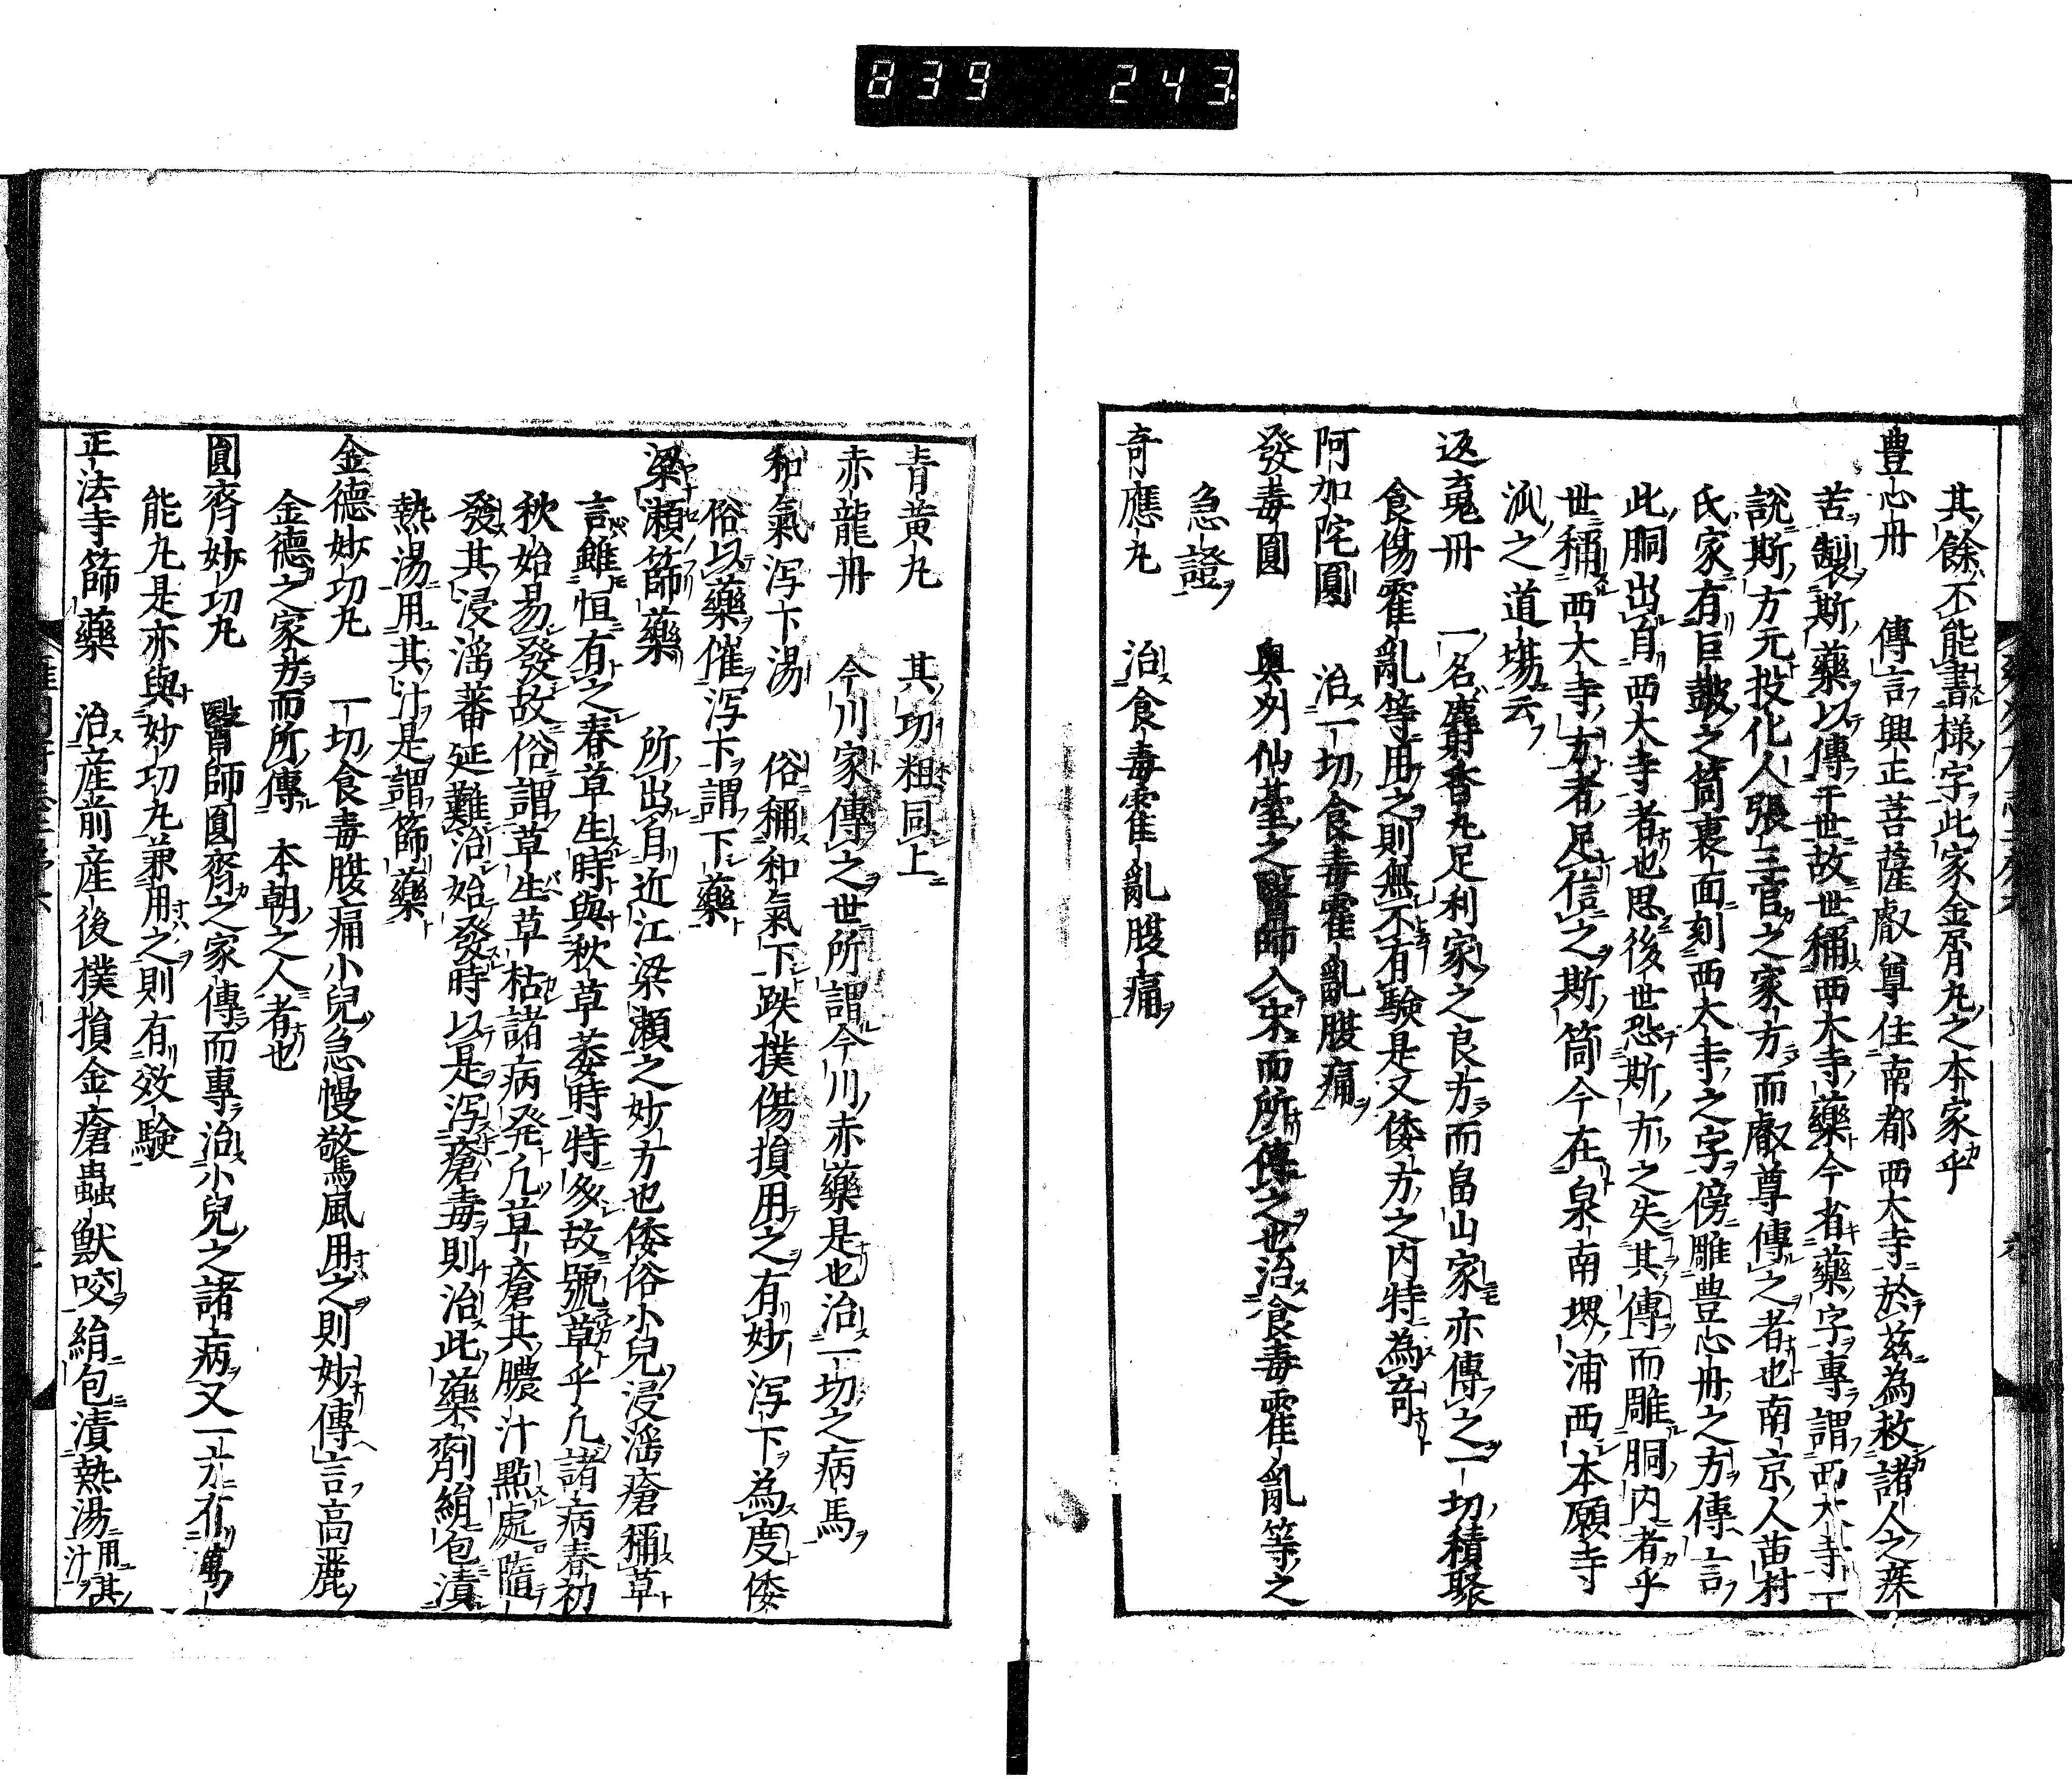 839 243
其餘不能書樣字此家金屑丸之本家乎
豊心丹 傳言興正菩薩叡尊住南都西大寺於茲為救諸人之疾
苦製斯藥以傳于世故世稱西大寺藥今省藥字專謂西大寺一
說斯方元投化人張三官之家方而叡尊傳之者也南京人苗村
氏家有巨皷之筒裏面刻西大寺之字傍雕豊心丹之方傳言
此胴出自西大寺者也思後世恐斯方之失其傳而雕胴内者乎
世稱西大寺方者足信之斯筒今在泉南堺浦西本願寺
派之道塲云
返䰟丹 一名麝香丸足利家之良方而畠山家亦傳之一切積聚
食傷霍亂等用之則無不有驗是又倭方之内特為奇
阿加陀圓 治一切食毒霍亂腹痛
發毒圓 奥州仙臺之醫師入宋而所傳之也治食毒霍亂等之
急證
奇應丸 治食毒霍亂腹痛
青黄丸 其功粗同上
赤龍丹 今川家傳之世所謂今川赤藥是也治一切之病馬
和氣泻下湯 俗稱和氣下跌撲傷損用之有妙泻下為度倭
俗以藥催泻下謂下藥
梁瀬篩藥 所出自近江梁瀬之妙方也倭俗小兒浸滛瘡稱草
言雖恒有之春草生時與秋草萎時特多故號草乎凡諸病春初
秋始易發故俗謂草生草枯諸病発凡草瘡其膿汁點處隨
發其浸滛蕃延難治始發時以是泻瘡毒則治此藥劑絹包漬
熱湯用其汁是謂篩藥
金德妙功丸 一切食毒腹痛小兒急慢驚風用之則妙傳言高麗
金德之家方而所傳 本朝之人者也
圓齊妙功丸 醫師圓齊之家傳而專治小兒之諸病又一方有萬
能丸是亦與妙功丸兼用之則有效驗
正法寺篩藥 治産前産後撲損金瘡蟲獸咬絹包漬熱湯用其汁